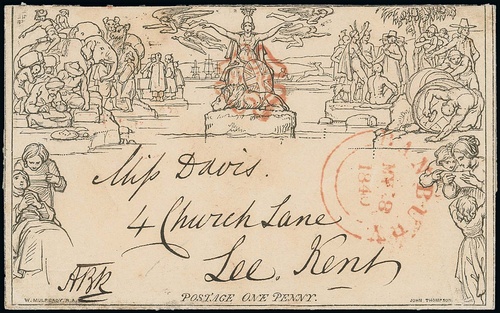 BANBURY
MY 8
1840
Miss Davis.
4 Church Lane
Lee. Kent
POSTAGE ONE PENNY.
W. MULREADY. R.A.
JOHN THOMPSON.